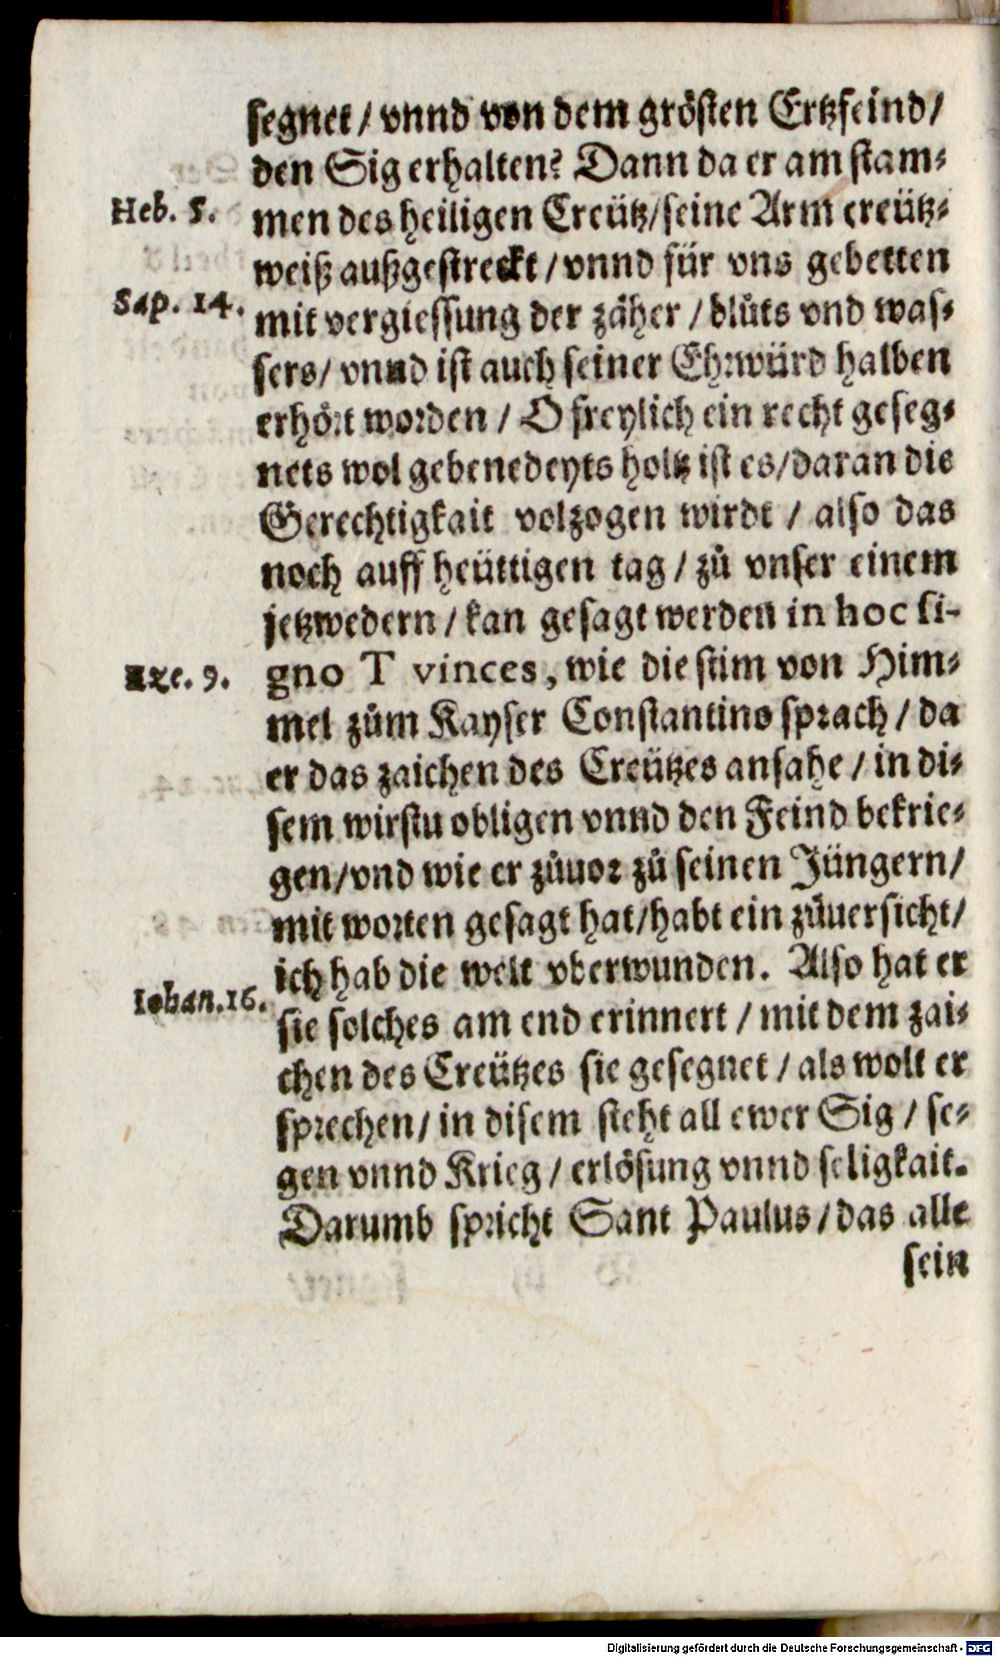 segnet / vnnd von dem grösten Ertzfeind /
den Sig erhalten? Dann da er am stam-
Heb. 5.
men des heiligen Creütz / seine Arm creütz-
weiß außgestreckt / vnnd für vns gebetten
Sap. 14.
mit vergiessung der zäher / blůts vnd was-
sers / vnnd ist auch seiner Ehrwürd halben
erhört worden / O freylich ein recht geseg-
nets wol gebenedeyts holtz ist es / daran die
Gerechtigkait volzogen wirdt / also das
noch auff heüttigen tag / zů vnser einem
jetzwedern / kan gesagt werden in hoc si-
Eze. 9.
gno T vinces, wie die stim von Him-
mel zům Kayser Constantino sprach / da
er das zaichen des Creützes ansahe / in di-
sem wirstu obligen vnnd den Feind bekrie-
gen / vnd wie er zůuor zů seinen Jüngern /
mit worten gesagt hat / habt ein zůuersicht /
ich hab die welt vberwunden. Also hat er
Iohan. 16.
sie solches am end erinnert / mit dem zai-
chen des Creützes sie gesegnet / als wolt er
sprechen / in disem steht all ewer Sig / se-
gen vnnd Krieg / erlösung vnnd seligkait.
Darumb spricht Sant Paulus / das alle
sein
Digitalisierung gefördert durch die Deutsche Forschungsgemeinschaft - DFG